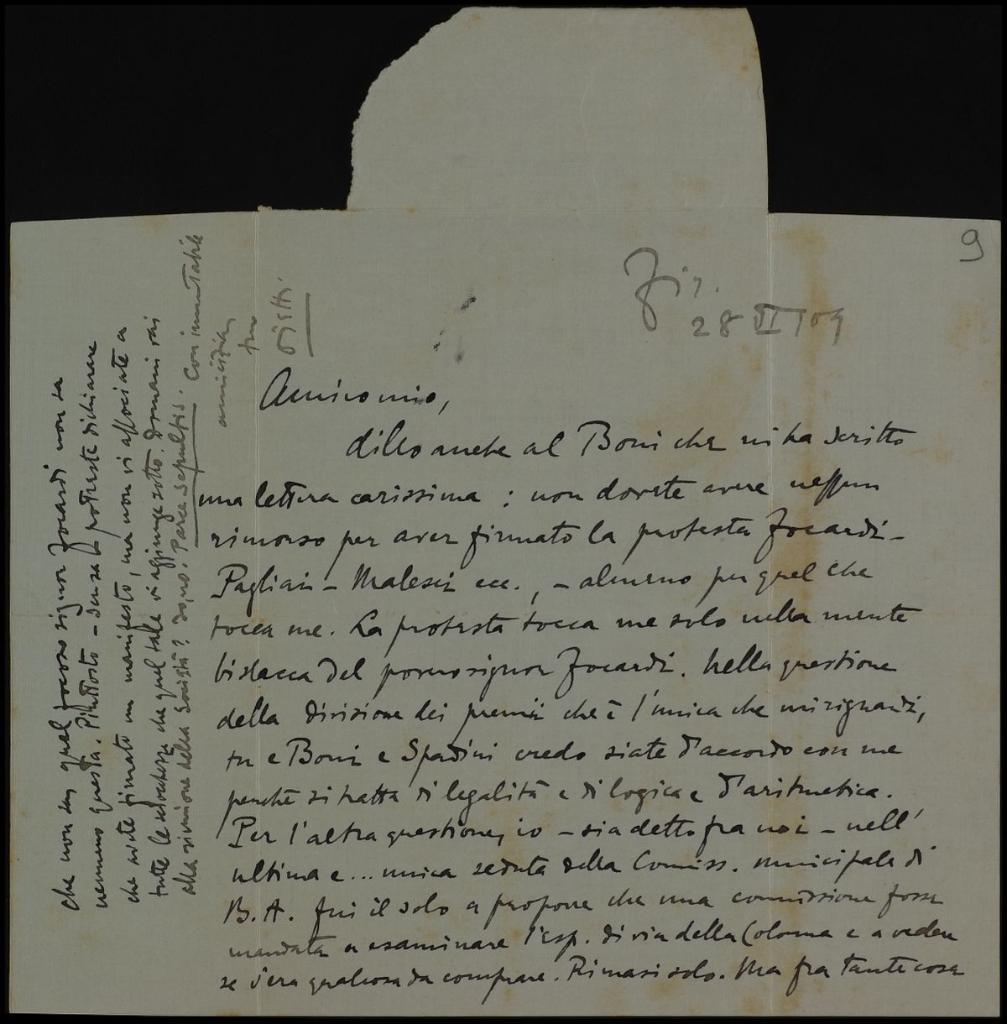 9
Fir.
28 VI 109
Amico mio,
dillo anche al Boni che mi ha scritto
una lettera carissima : non dovete avere nessun
rimorso per aver firmato la protesta Focardi -
Pagliai - Malesci ecc., - almeno per quel che
tocca me. La protesta tocca me solo nella mente
bislacca del signor Focardi. Nella questione
della divisione dei premii che è l'unica che mi riguardi,
tu e Boni e Spadini credo siate d'accordo con me
perchè si tratta di legalità e di logica e d'aritmetica.
Per l'altra questione, io - sia detto fra noi - nell'
ultima e... unica seduta della Comiss. municipale di
B.A. fui il solo a proporre che una commissione fosse
mandata a esaminare l'esp. di via della Colonna e a vedere
se v'era qualcosa da comprare. Rimasi solo. Ma fra tante cose
che non sa quel focoso signor Focardi non sa
nemmeno questa. Piuttosto - potreste dichiarare
che avete firmato un manifesto, ma non vi associate a
tutte le che quel tale vi aggiunge sotto. Domani vai
alla riunione della Società? Io, no. Parce sepultis. Con immutabile
amicizia
tuo
Ojetti